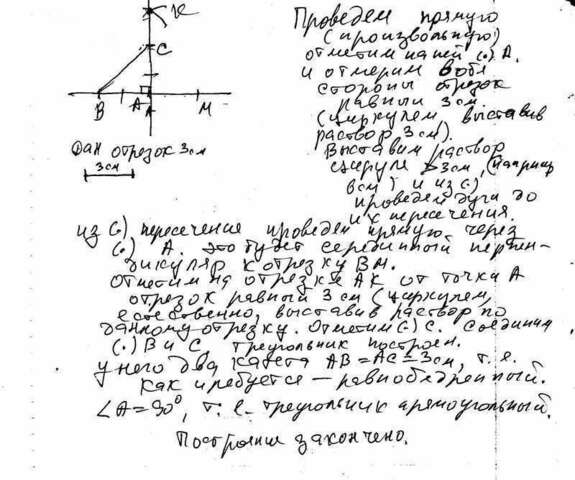 К
С
В
А
М
Дан отрезок 3см
3см
Проведем прямую
(произвольную)
отметим на ней (.) А.
и отмерим в обе
стороны отрезок
равный 3см.
(циркулем, выставив
раствор 3см).
Выставим раствор
циркуля >3см, (например
6см) и из (.)
проведем дуги до
их пересечения.
из (.) пересечение проведем прямую через
(.) А. это будет серединный перпен-
дикуляр к отрезку ВМ.
Отметим на отрезке АК от точки А
отрезок равный 3см (циркулем,
естественно, выставив раствор по
данному отрезку. Отметим (.) С. Соединим
(.) В и С, треугольник построен.
У него два катета АВ=АС=3см, т.е.
как и требуется — равнобедренный.
∠А=90°, т.е. треугольник прямоугольный.
Построение закончено.